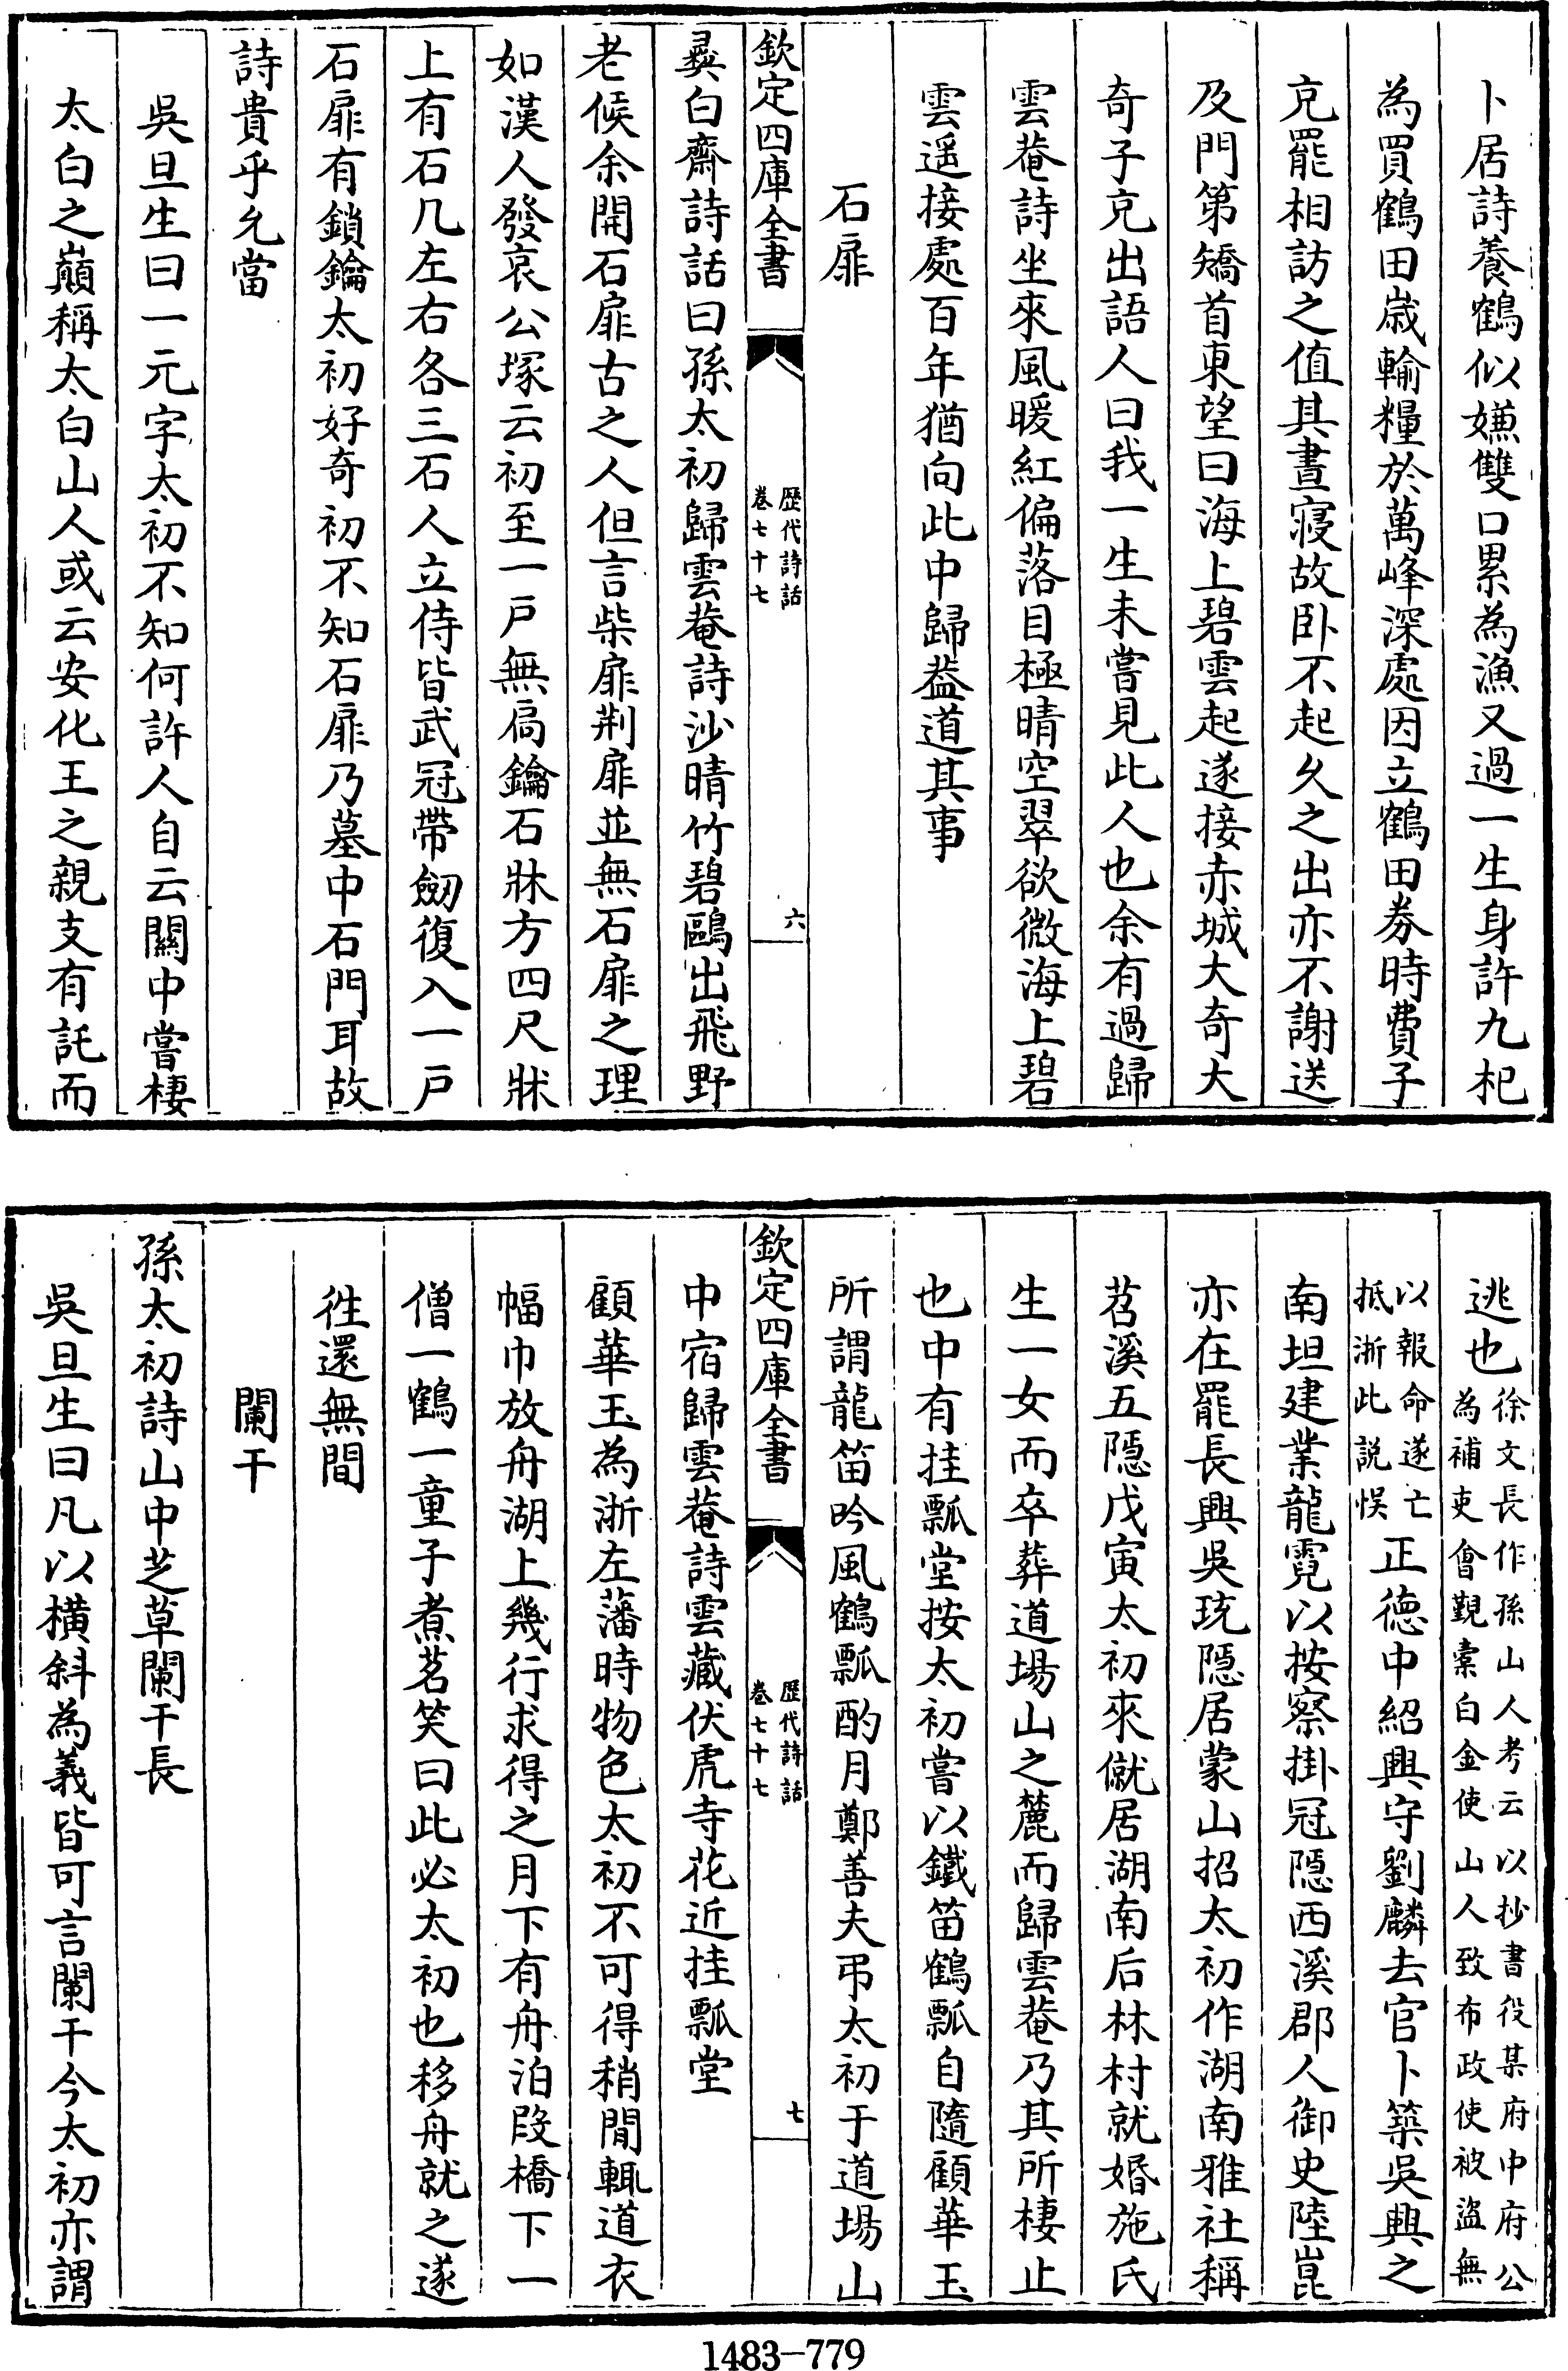 卜居詩養鶴似嫌雙口累為漁又過一生身許九杞
為買鶴田嵗輸糧於萬峰深處因立鶴田劵時費子
克罷相訪之值其晝寢故卧不起久之出亦不謝送
及門第矯首東望曰海上碧雲起遂接赤城大奇大
奇子克出語人曰我一生未嘗見此人也余有過歸
雲菴詩坐來風暖紅偏落目極晴空翠欲微海上碧
雲遥接處百年猶向此中歸葢道其事
石扉
欽定四庫全書
歴代詩話
卷七十七
六
彛白齋詩話曰孫太初歸雲菴詩沙晴竹碧鷗出飛野
老候余開石扉古之人但言柴扉荆扉並無石扉之理
如漢人發哀公塚云初至一戸無扃鑰石牀方四尺牀
上有石几左右各三石人立侍皆武冠帶劔復入一戸
石扉有鎖鑰太初好奇初不知石扉乃墓中石門耳故
詩貴乎允當
吳旦生曰一元字太初不知何許人自云關中嘗棲
太白之巔稱太白山人或云安化王之親支有託而
逃也徐文長作孫山人考云以抄書役某府中府公
為補吏會覲橐白金使山人致布政使被盜無
以報命遂亡
抵浙此説悮
正德中紹興守劉麟去官卜築吳興之
南坦建業龍霓以按察掛冠隠西溪郡人御史陸崑
亦在罷長興吳珫隠居蒙山招太初作湖南雅社稱
苕溪五隠戊寅太初來僦居湖南后林村就婚施氏
生一女而卒葬道場山之麓而歸雲菴乃其所棲止
也中有挂瓢堂按太初嘗以鐵笛鶴瓢自隨顧華玉
所謂龍笛吟風鶴瓢酌月鄭善夫弔太初于道場山
欽定四庫全書
歴代詩話
卷七十七
七
中宿歸雲菴詩雲藏伏虎寺花近挂瓢堂
顧華玉為浙左藩時物色太初不可得稍閒輒道衣
幅巾放舟湖上幾行求得之月下有舟泊段橋下一
僧一鶴一童子煮茗笑曰此必太初也移舟就之遂
徃還無間
闌干
孫太初詩山中芝草闌干長
吳旦生曰凡以橫斜為義皆可言闌干今太初亦謂
1483-779